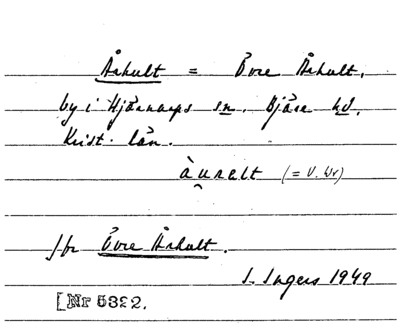 Århult = Övre Århult,
by i Hjärnarps sn. Bjäre hd,
Krist. län.
àu̯relt (= V. Wr)
Jfr Övre Århult.
I. Ingers 1949
[Nr 5322.